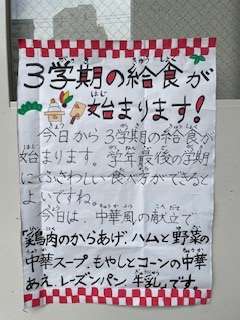 3学期の給食が
始まります!
今日から3学期の給食が
始まります。学年最後の学期
にふさわしい食べ方ができると
よいですね。
今日は、中華風の献立で、
「鶏肉のからあげ、ハムと野菜の
中華スープ、もやしとコーンの中華
あえ、レーズンパン、牛乳」です。